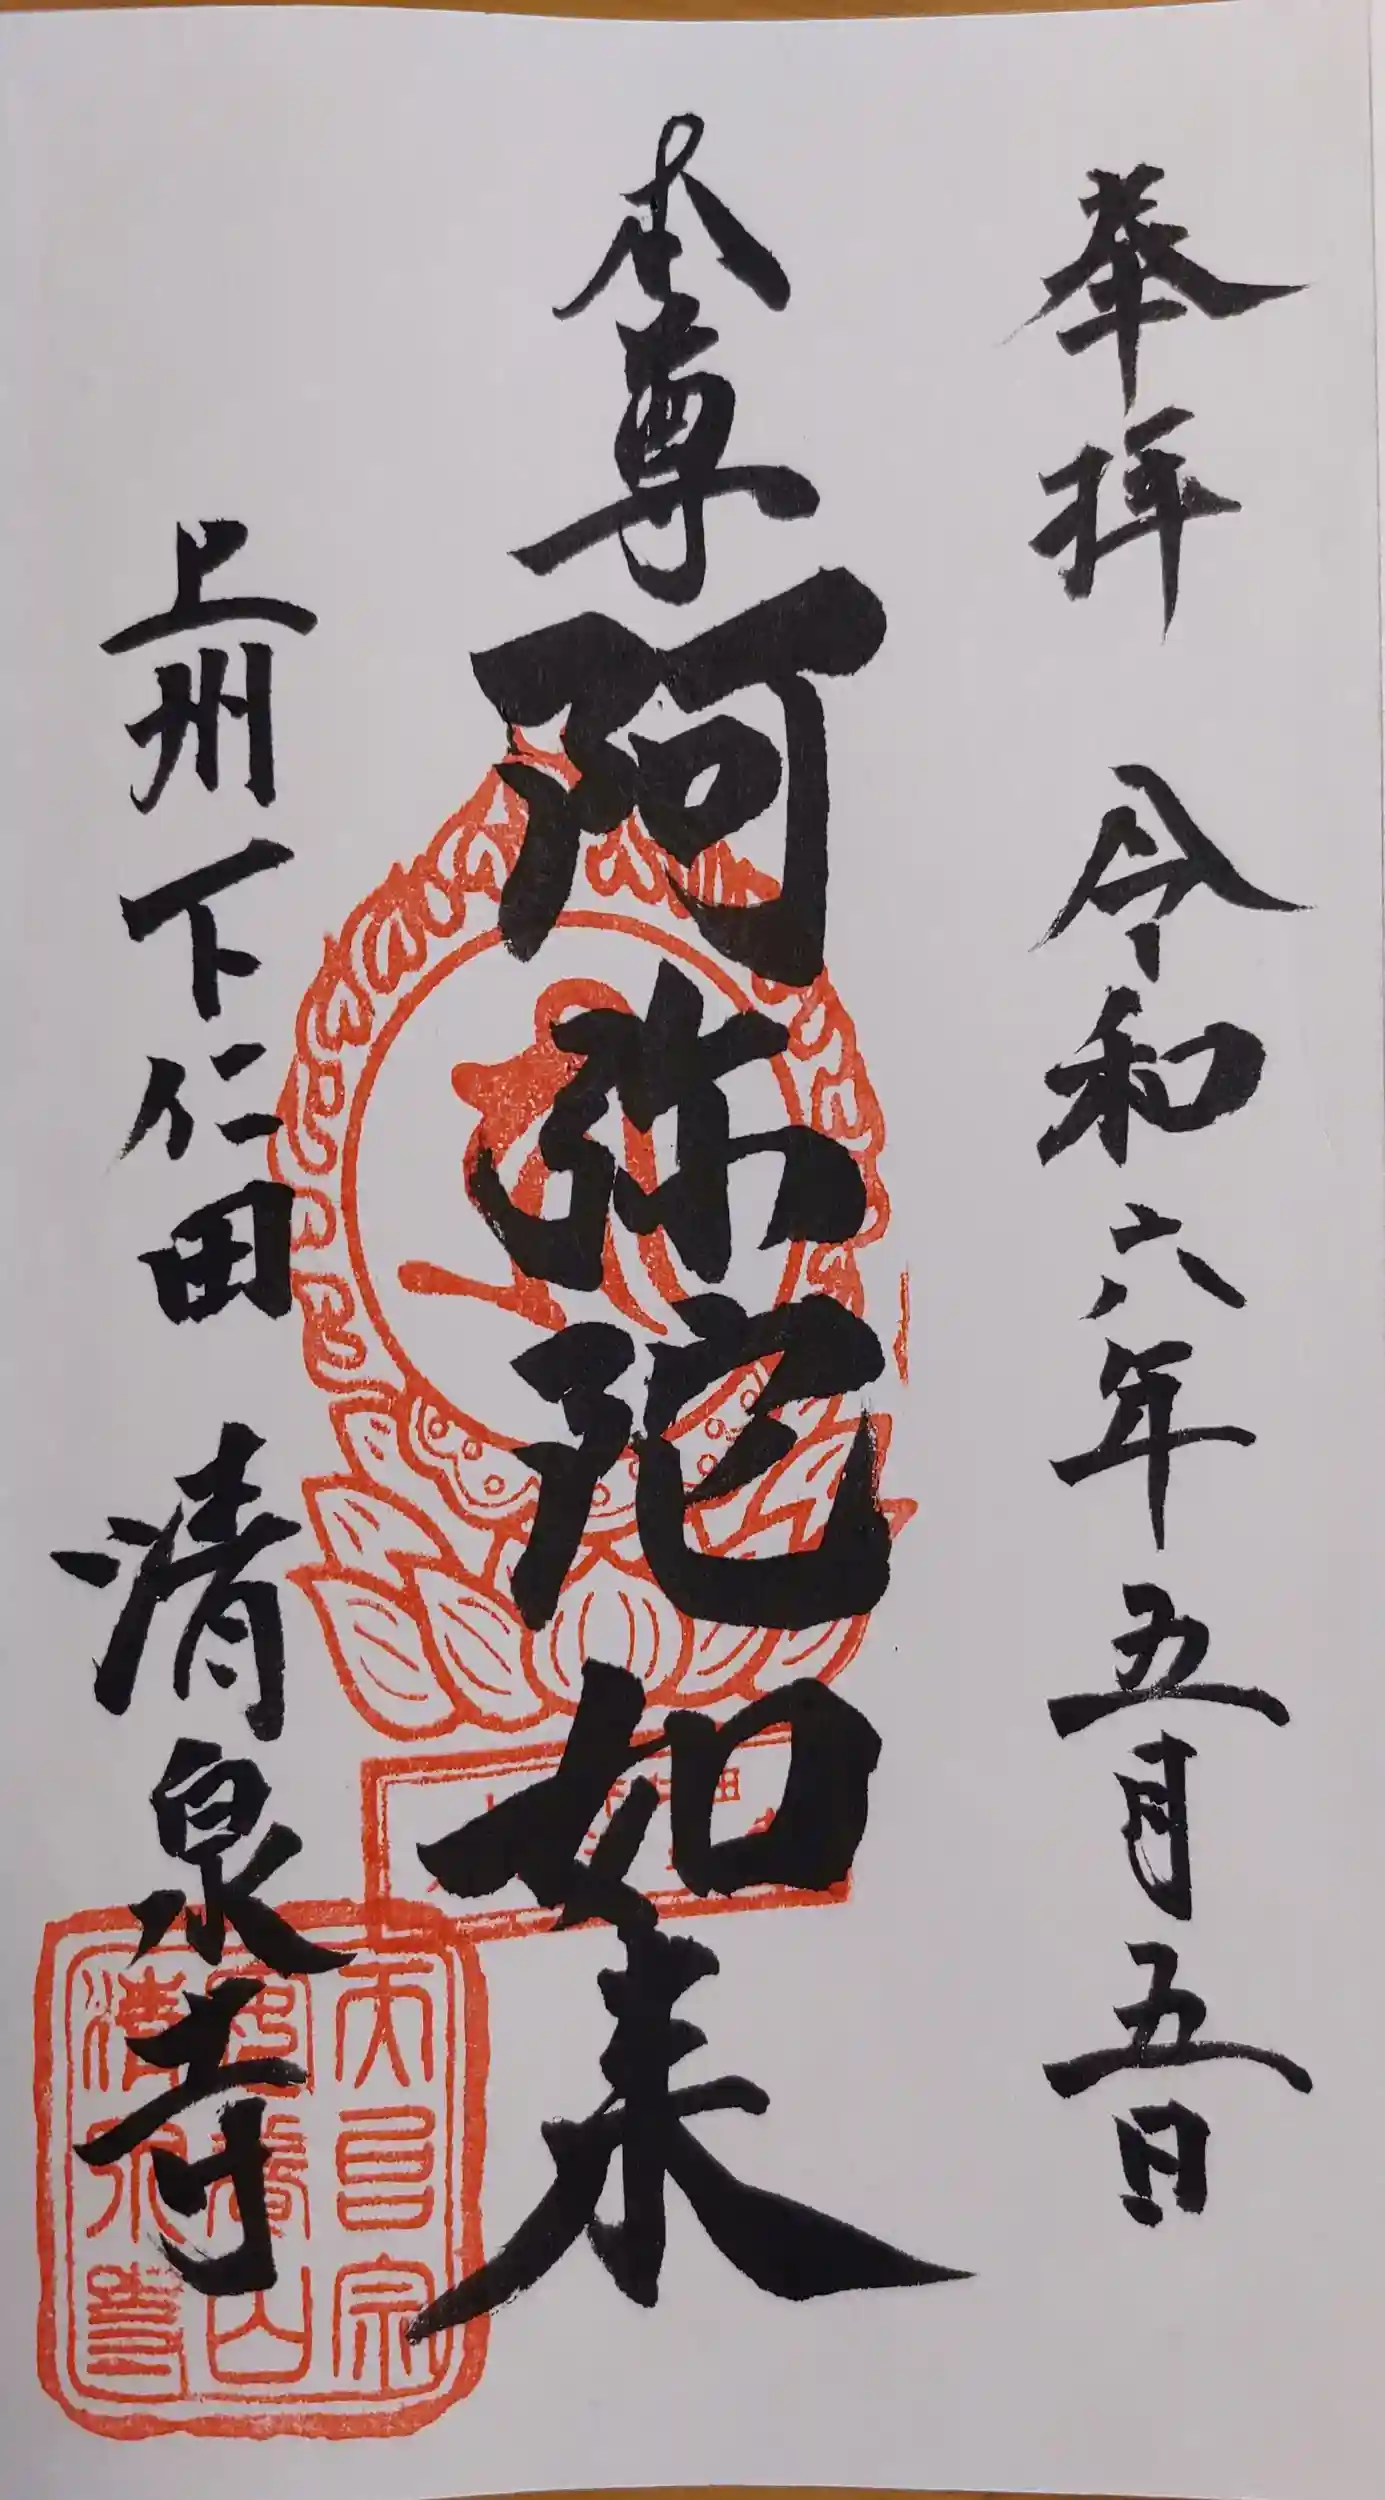 奉拝 令和六年五月五日
本尊 阿弥陀如来
上州下仁田 清泉寺